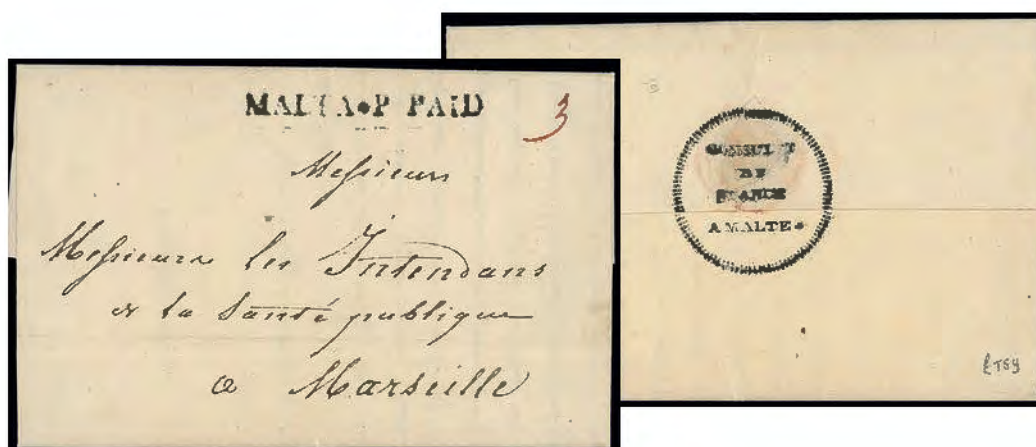 MALTA•P PAID
3
Messieurs
Messieurs les Intendans
de la Santé publique
a Marseille
CONSULAT
DE
FRANCE
A MALTE